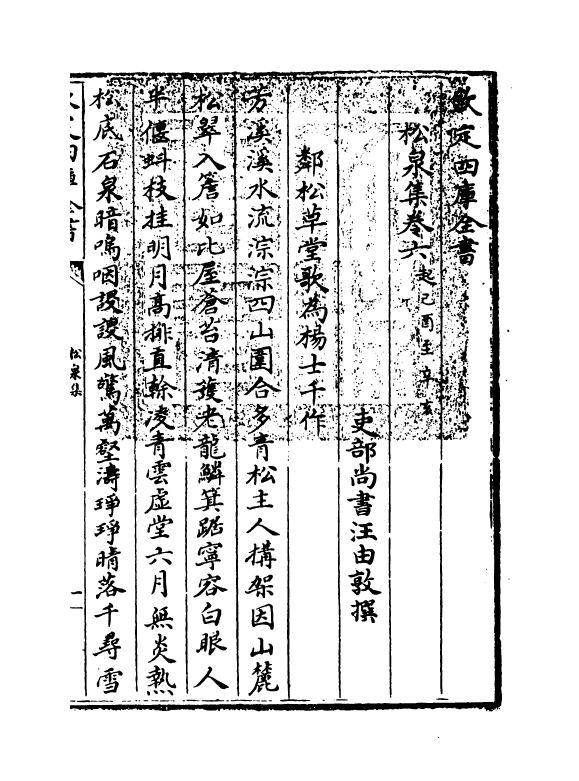 欽定四庫全書
松泉集卷六起己酉至辛亥
吏部尚書汪由敦撰
鄰松草堂歌為楊士千作
方溪溪水流淙淙四山圍合多青松主人搆架因山麓
松翠入簷如比屋蒼苔清護老龍鱗箕踞寧容白眼人
半偃蚪枝挂明月高排直幹凌青雲虛堂六月無炎熱
松底石泉暗嗚咽謖謖風驚萬壑濤琤琤晴落千尋雪
松泉集
一